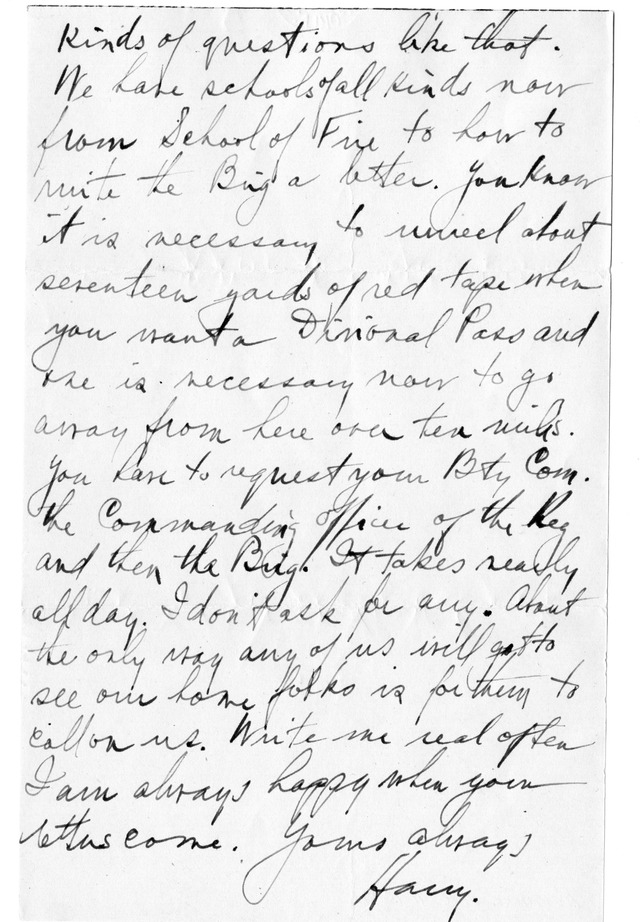 kinds of questions like that.
We have schools of all kinds now
from School of Fire to how to
write the Brig a letter. You know
it is necessary to unreel about
seventeen yards of red tape when
you want a Divional Pass and
one is necessary now to go
away from here over ten miles.
You have to request your Bty Com.
the Commanding Officer of the Reg
and then the Brig. It takes nearly
all day. I don't ask for any. About
the only way any of us will get to
see our home folks is for them to
call on us. Write me real often
I am always happy when your
letters come. Yours always
Harry.